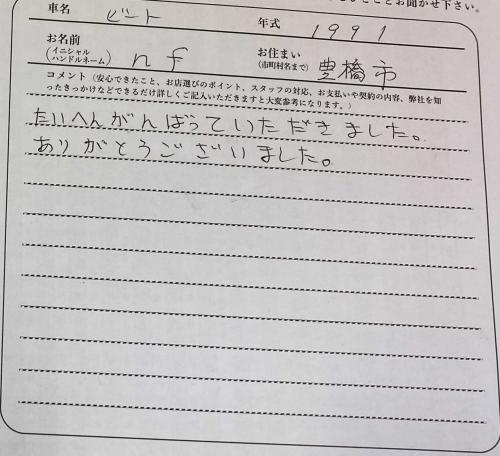 ことお聞かせ下さい。
車名 ビート 年式 1991
お名前 (イニシャル ハンドルネーム) n f お住まい (市町村名まで) 豊橋市
コメント（安心できたこと、お店選びのポイント、スタッフの対応、お支払いや契約の内容、弊社を知
ったきっかけなどできるだけ詳しくご記入いただきますと大変参考になります。）
たいへんがんばっていただきました。
ありがとうございました。